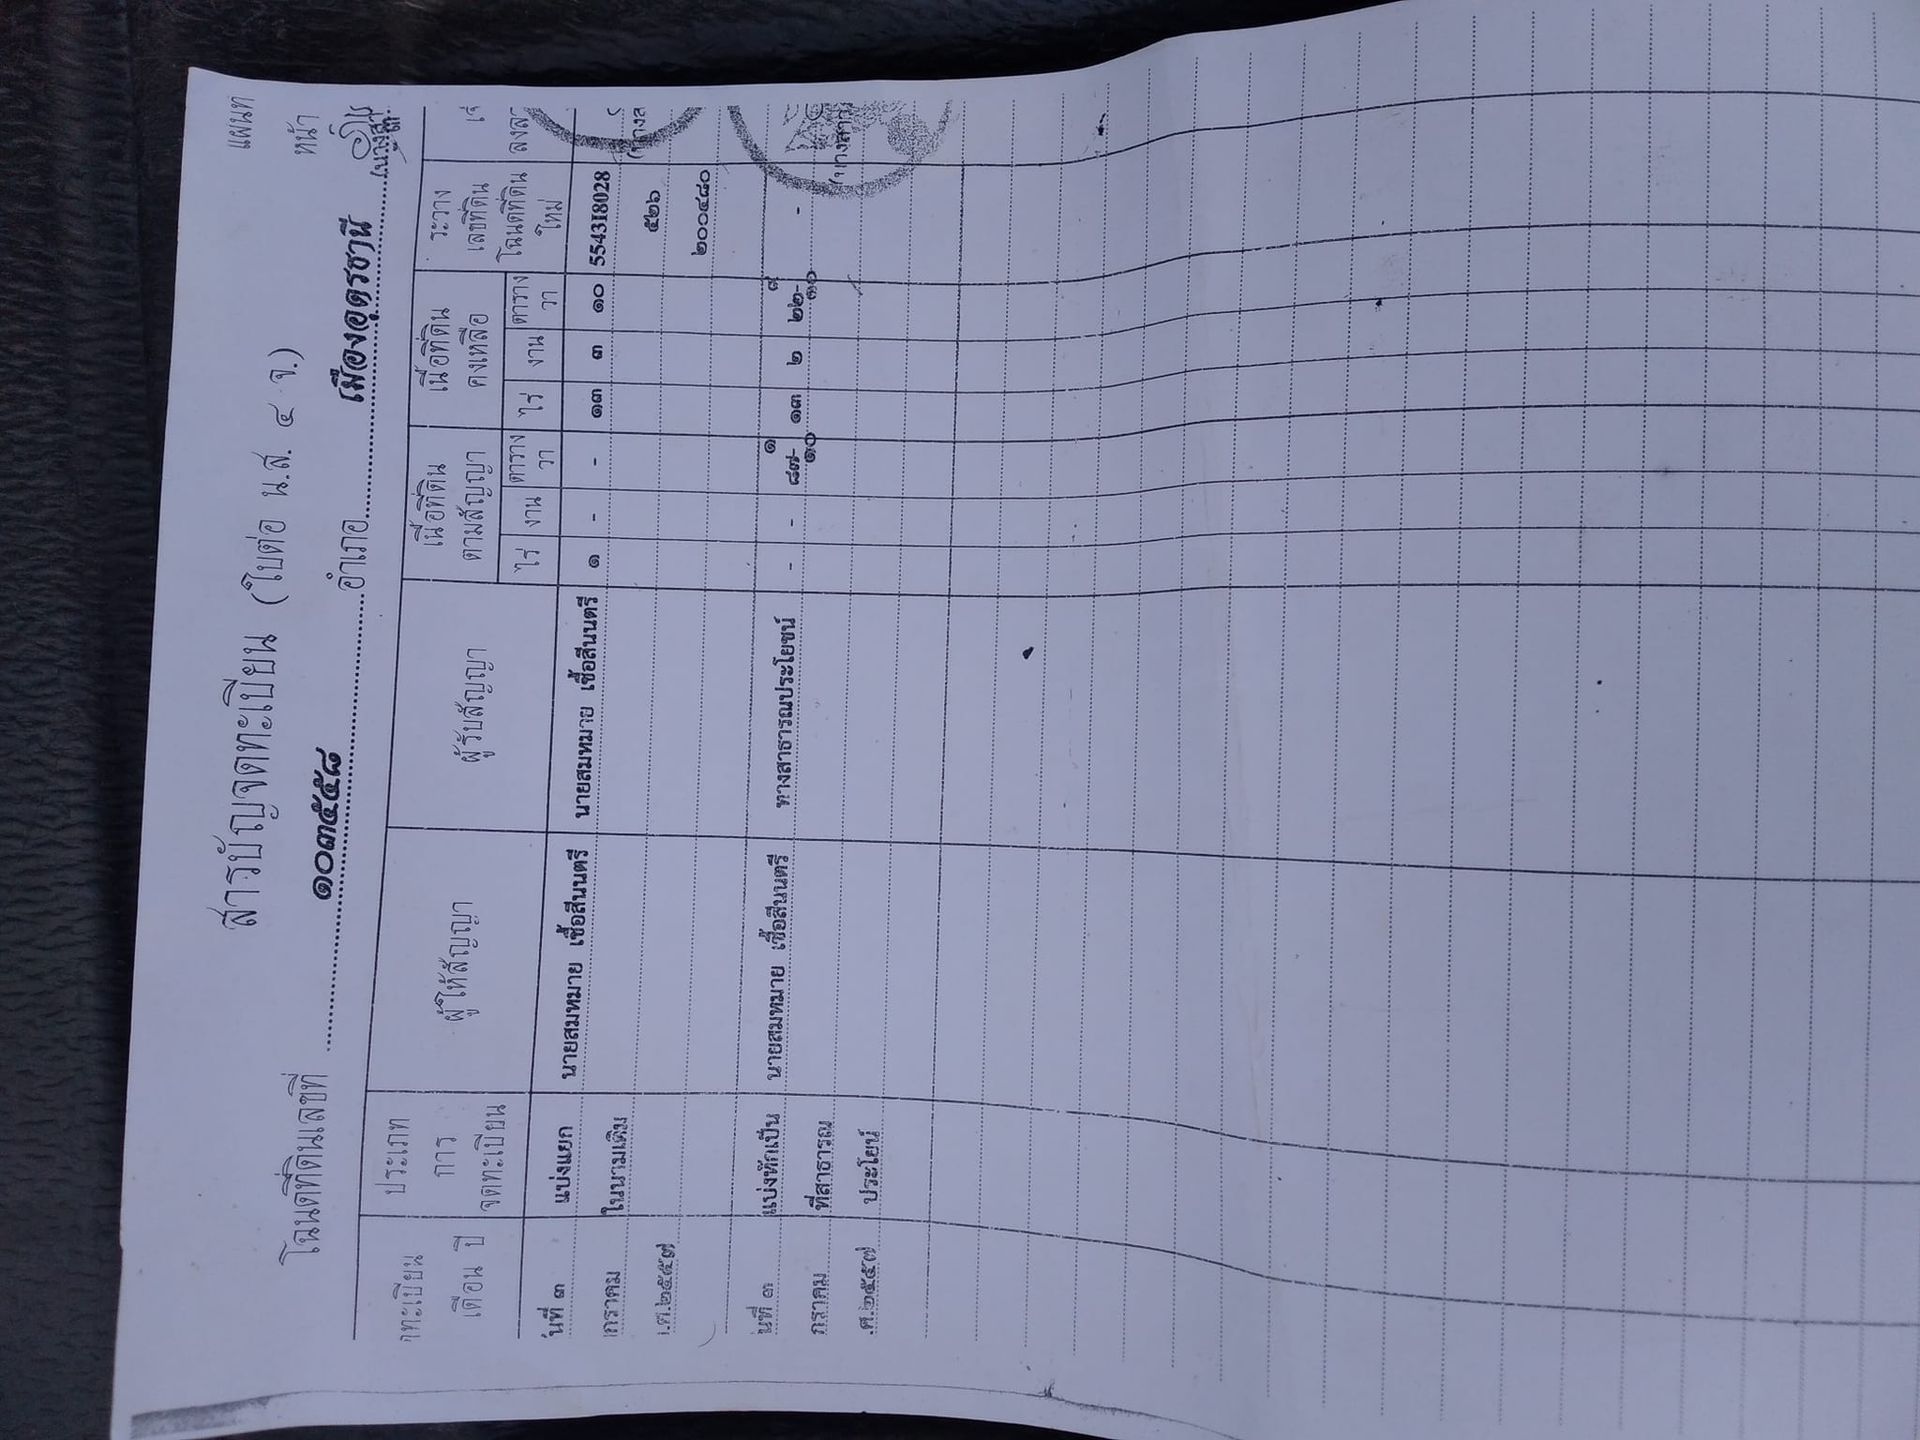 แผ่นที่
หน้า ๓
สารบัญจดทะเบียน (ใบต่อ น.ส. ๔ จ.)
โฉนดที่ดินเลขที่ ๑๐๓๕๕๘ อำเภอ เมืองอุดรธานี
ทะเบียน เดือน ปี
ประเภท การ จดทะเบียน
ผู้ให้สัญญา
ผู้รับสัญญา
เนื้อที่ดิน ตามสัญญา
ไร่ งาน ตาราง วา
เนื้อที่ดิน คงเหลือ
ไร่ งาน ตาราง วา
ระวาง เลขที่ดิน โฉนดที่ดิน ใหม่
นที่ ๓ แบ่งแยก นายสมหมาย เชื้อสีนนตรี นายสมหมาย เชื้อสีนนตรี ๑ - - ๑๓ ๓ ๑๐ 5543I8028
กราคม ในนามเดิม ๕๒๖
.ศ.๒๕๕๗ ๒๐๐๔๘๐
นที่ ๓ แบ่งหักเป็น นายสมหมาย เชื้อสีนนตรี ทางสาธารณประโยชน์ - - ๘๗-๑/๑๐ ๑๓ ๒ ๒๒-๙/๑๐ -
กราคม ที่สาธารณ
.ศ.๒๕๕๗ ประโยน์